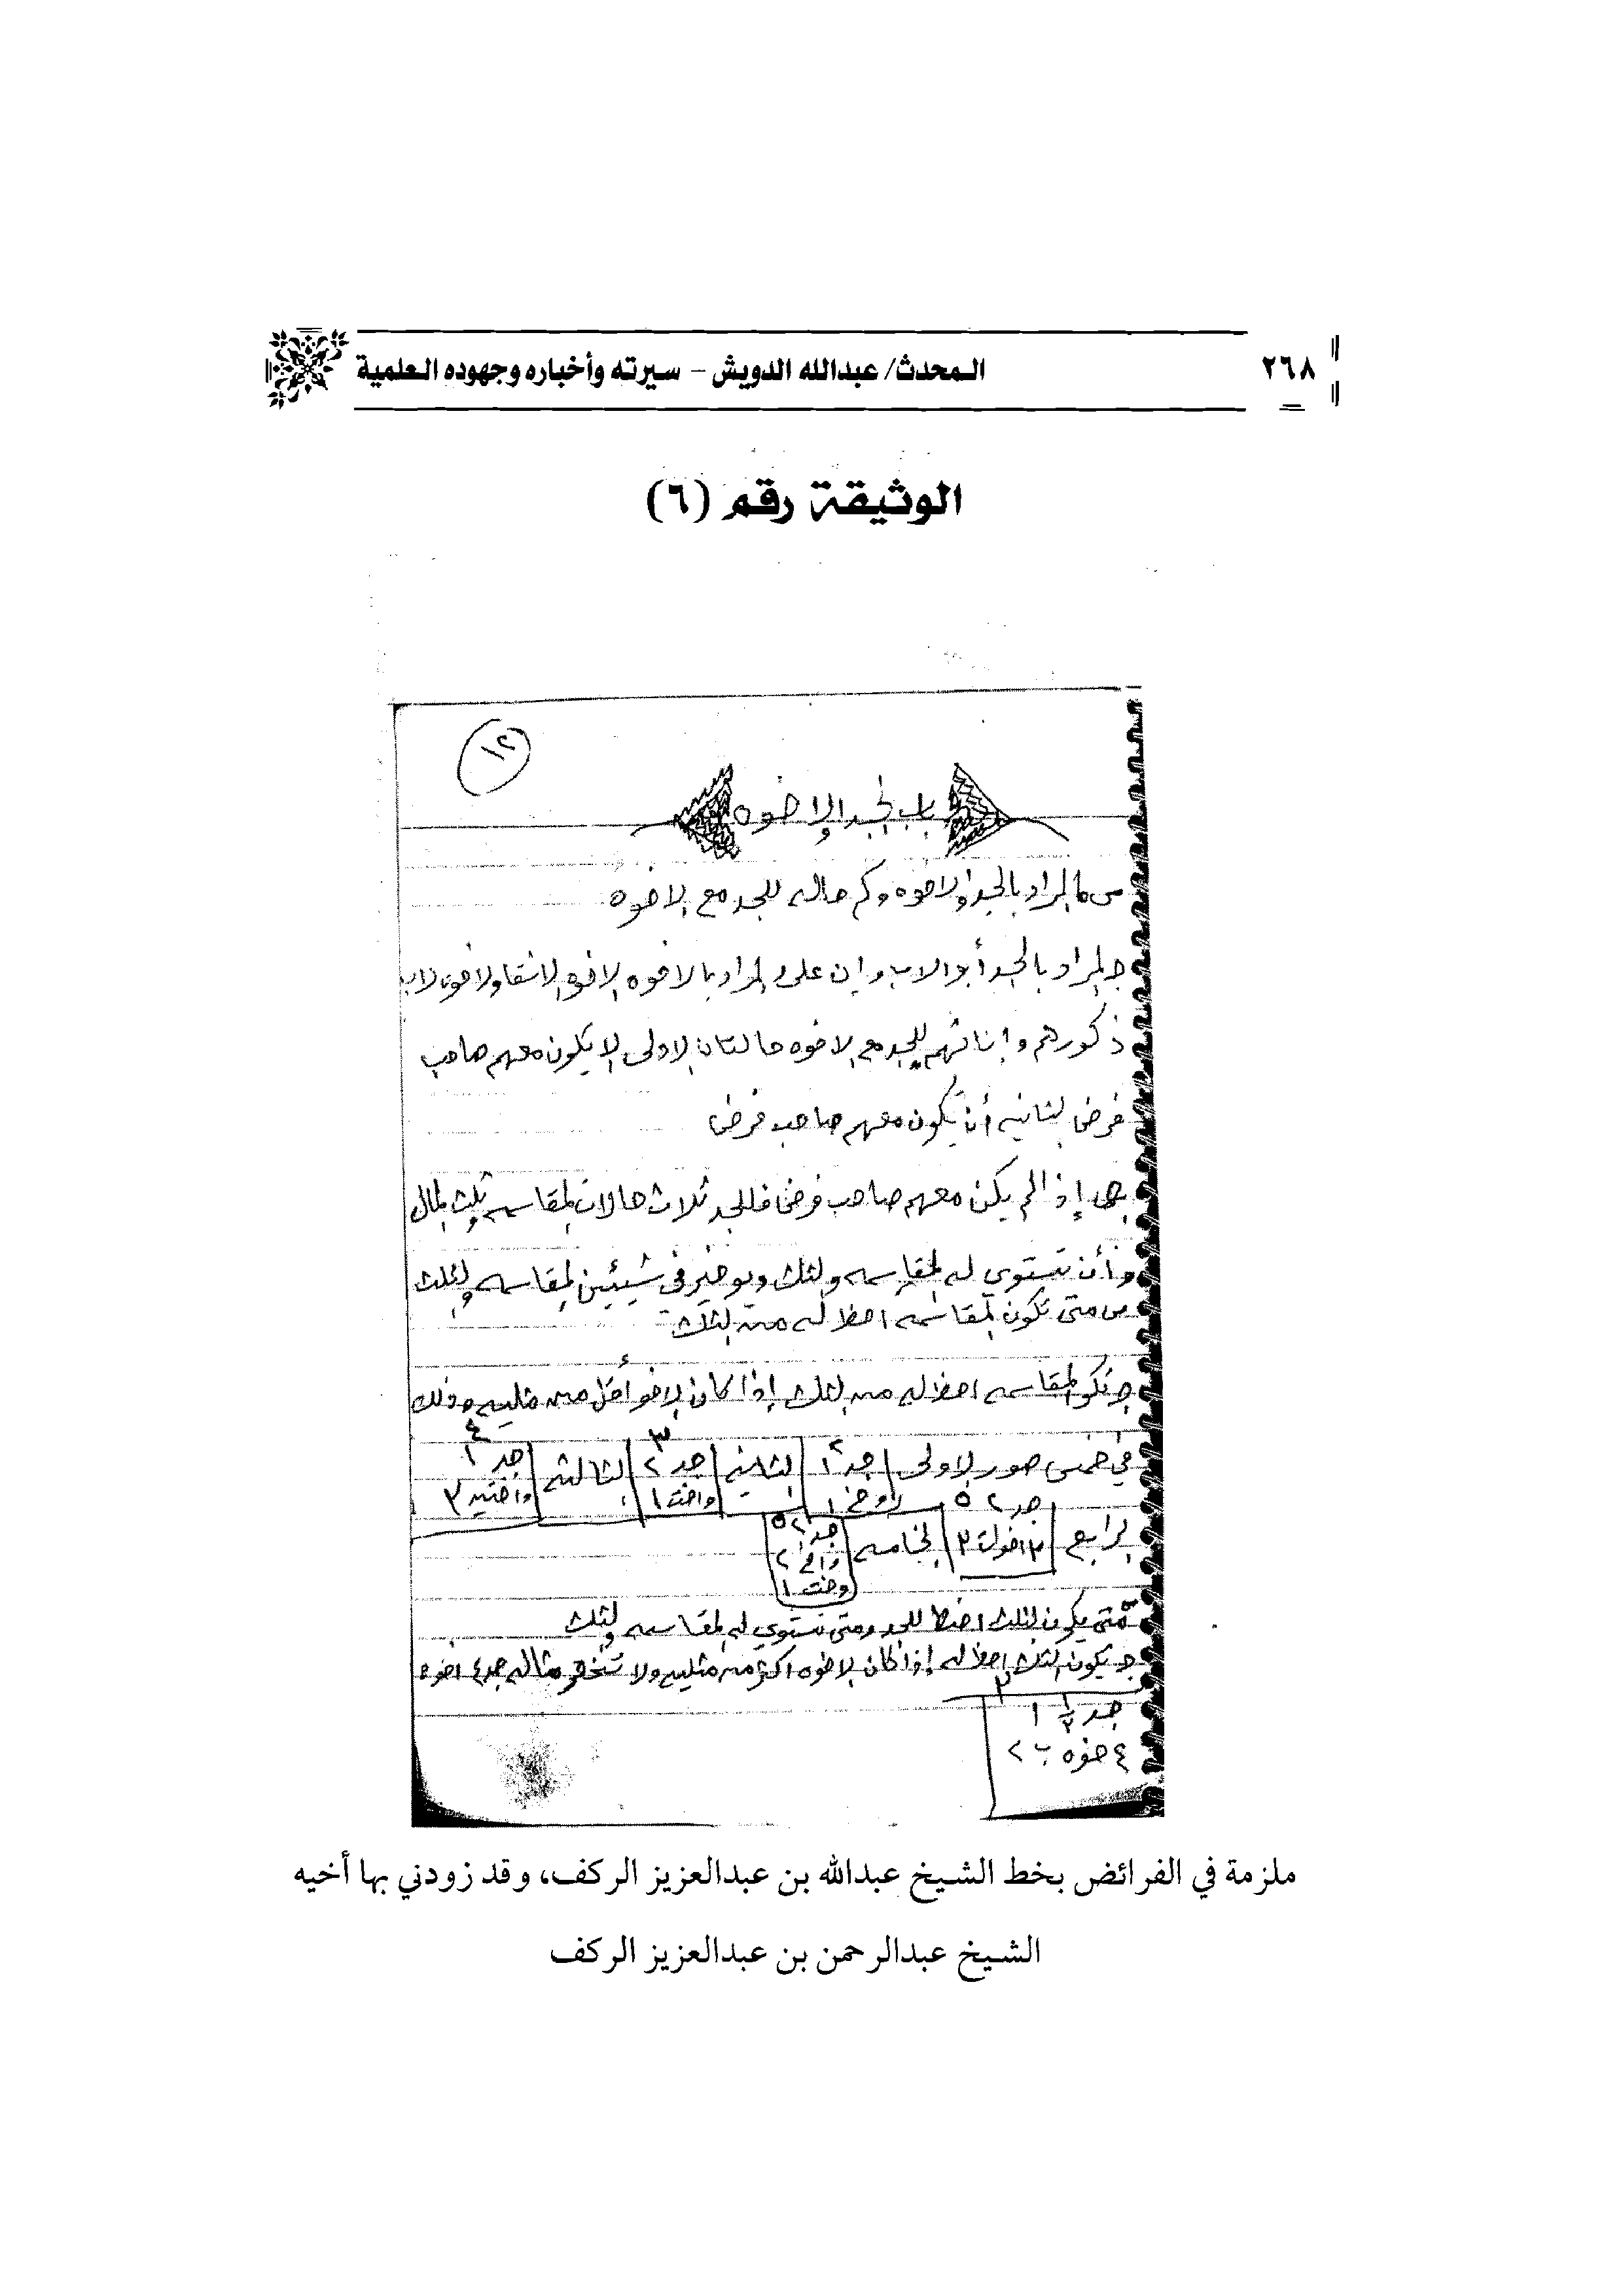 ٢٦٨
المحدث/ عبدالله الدويش - سيرته وأخباره وجهوده العلمية
الوثيقة رقم (٦)
١٢
باب الجد والاخوه
س ما المراد بالجد والاخوه وكم حاله للجد مع الاخوه
ج المراد بالجد أبو الاب وإن على والمراد بالاخوه الاخوه الاشقا والاخوه لاب
ذكورهم وإناثهم للجد مع الاخوه حالتان الاولى ألا يكون معهم صاحب
فرض الثانيه أن يكون معهم صاحب فرض
إذا لم يكن معهم صاحب فرض فللجد ثلاث حالات المقاسمه وثلث المال
وأن تستوي له المقاسمه والثلث ويوخير في شيئين المقاسمه والثلث
س متى تكون المقاسمه احظ له من الثلث
ج تكون المقاسمه احظ له من الثلث إذا كان الاخوه أقل من مثليه وذلك
في خمس صور الاولى جد ١ ٢ الثانيه جد ٢ ٣ الثالثه جد ٤
واخ ١ واخت ١ واختين ٢
الرابع جد ٢ ٥ ٣ اخوات ٣ الخامسه جد ٢ ٥
واخ ٢
واخت ١
س متى يكون الثلث احظ للجد ومتى تستوي له المقاسمه والثلث
ج يكون الثلث احظ له إذا كان الاخوه اكثر من مثليه ولا تنحصر مثاله جد ٤ اخوه
٣
جد ١/٣ ١
٤ اخوه ب ٢
ملزمة في الفرائض بخط الشيخ عبدالله بن عبدالعزيز الركف، وقد زودني بها أخيه
الشيخ عبدالرحمن بن عبدالعزيز الركف